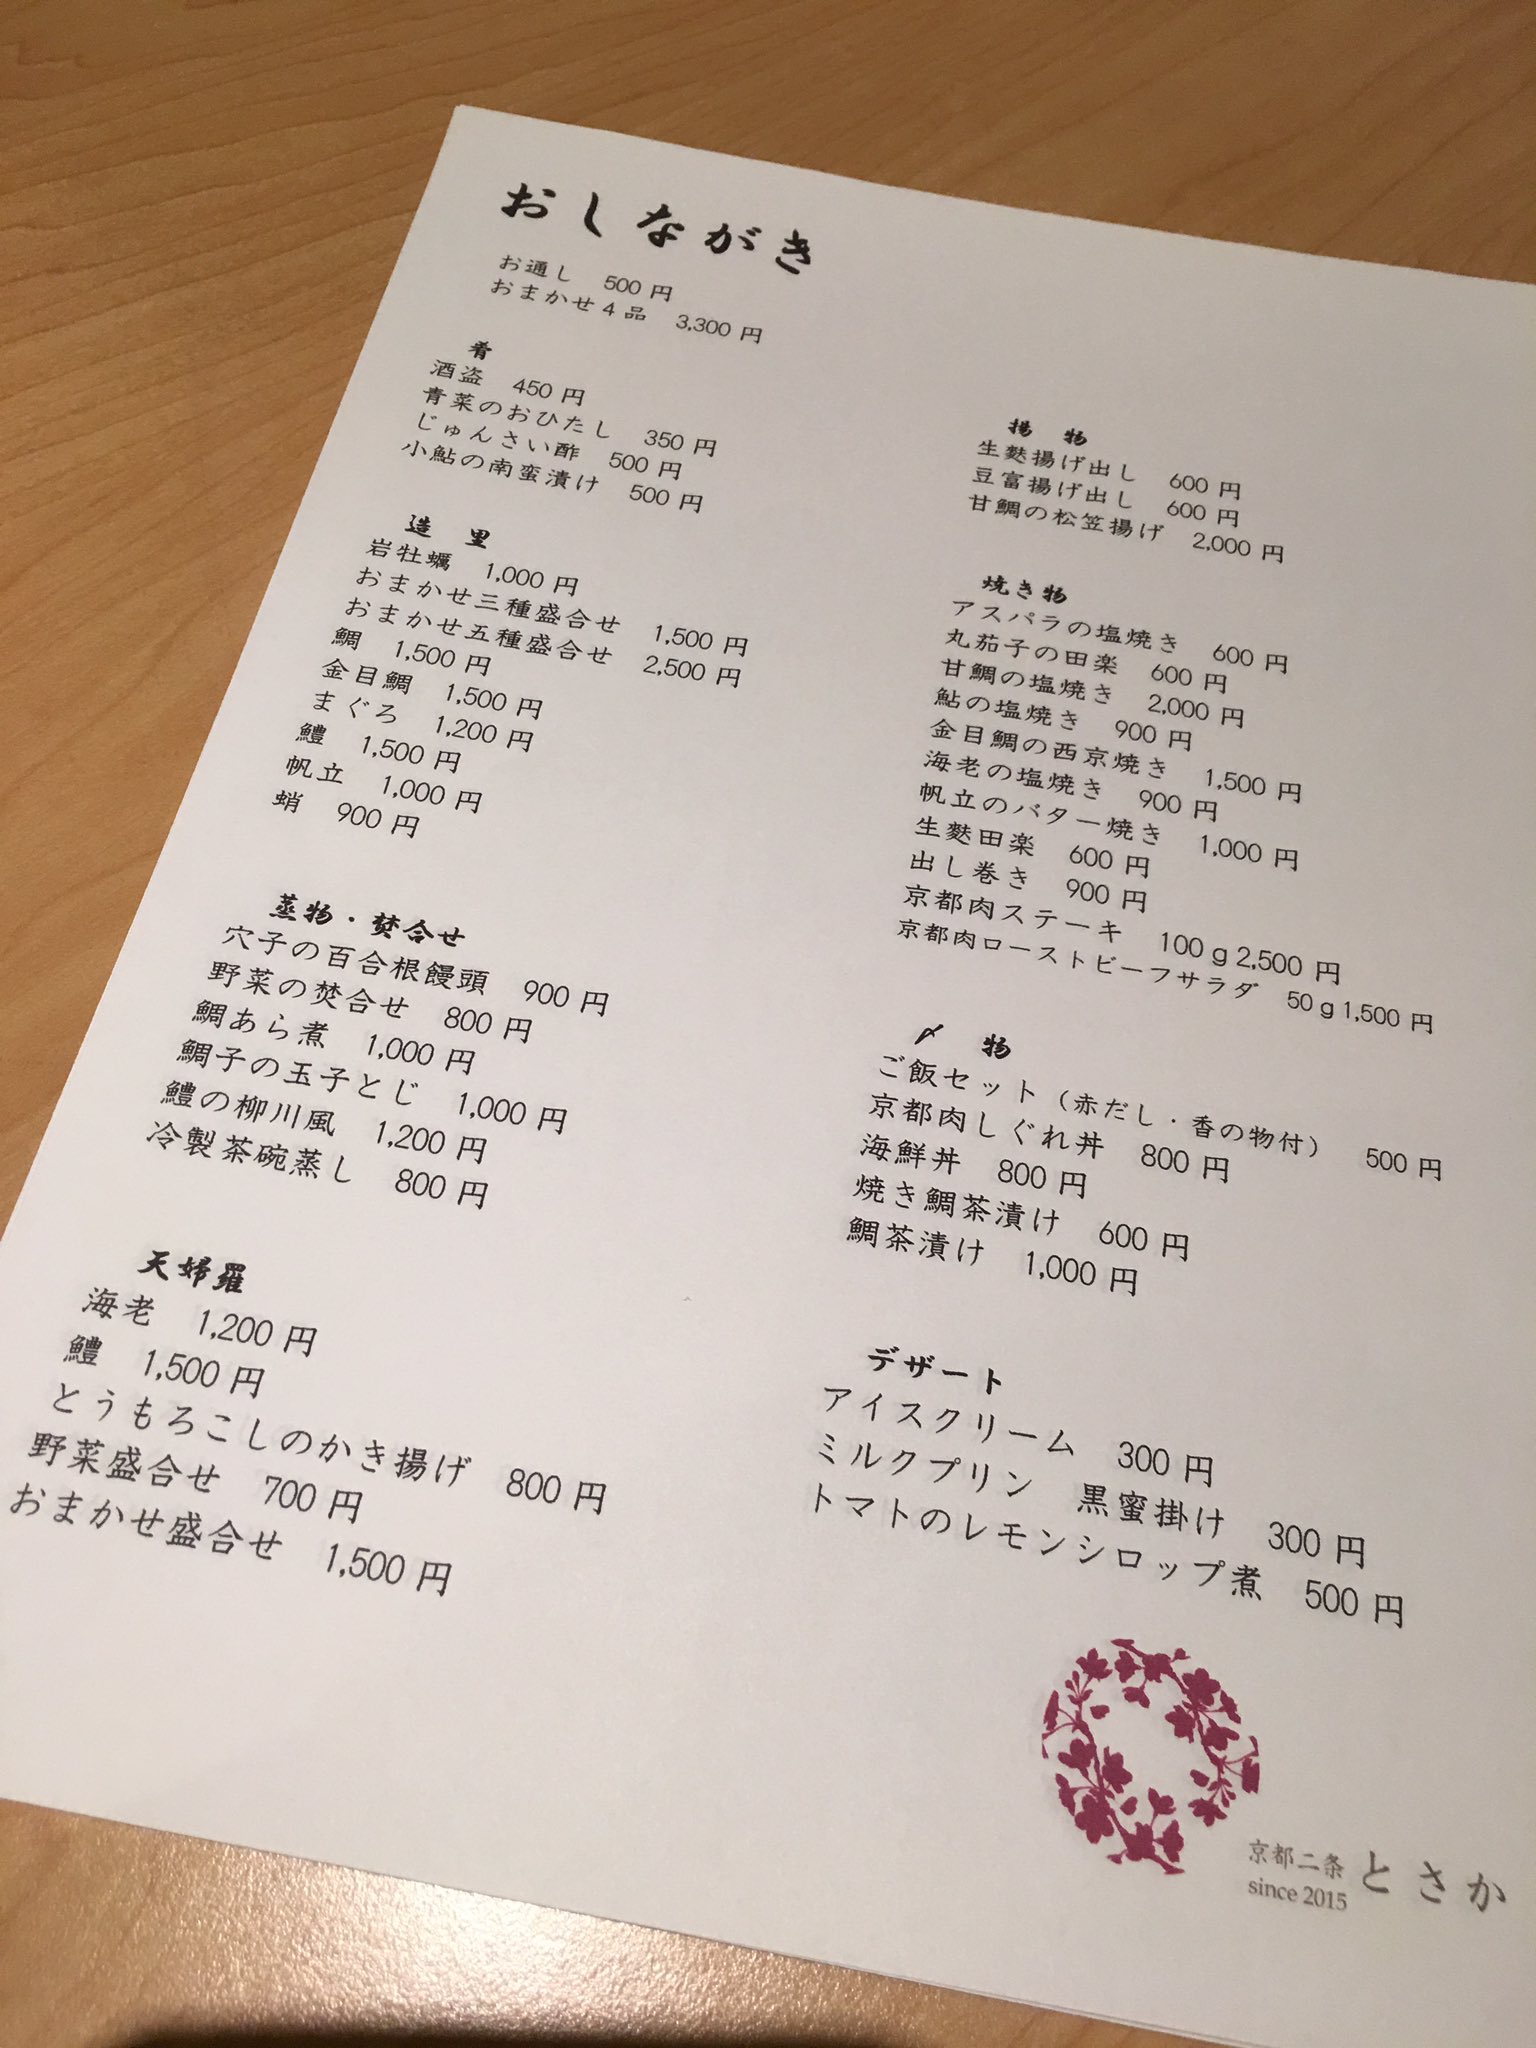 おしながき
お通し　500 円
おまかせ４品　3,300 円
肴
酒盗　450 円
青菜のおひたし　350 円
じゅんさい酢　500 円
小鮎の南蛮漬け　500 円
造　里
岩牡蠣　1,000 円
おまかせ三種盛合せ　1,500 円
おまかせ五種盛合せ　2,500 円
鯛　1,500 円
金目鯛　1,500 円
まぐろ　1,200 円
鱧　1,500 円
帆立　1,000 円
蛸　900 円
蒸物・焚合せ
穴子の百合根饅頭　900 円
野菜の焚合せ　800 円
鯛あら煮　1,000 円
鯛子の玉子とじ　1,000 円
鱧の柳川風　1,200 円
冷製茶碗蒸し　800 円
天婦羅
海老　1,200 円
鱧　1,500 円
とうもろこしのかき揚げ　800 円
野菜盛合せ　700 円
おまかせ盛合せ　1,500 円
揚　物
生麩揚げ出し　600 円
豆富揚げ出し　600 円
甘鯛の松笠揚げ　2,000 円
焼き物
アスパラの塩焼き　600 円
丸茄子の田楽　600 円
甘鯛の塩焼き　2,000 円
鮎の塩焼き　900 円
金目鯛の西京焼き　1,500 円
海老の塩焼き　900 円
帆立のバター焼き　1,000 円
生麩田楽　600 円
出し巻き　900 円
京都肉ステーキ　100ｇ2,500 円
京都肉ローストビーフサラダ　50ｇ1,500 円
〆　物
ご飯セット（赤だし・香の物付）　500 円
京都肉しぐれ丼　800 円
海鮮丼　800 円
焼き鯛茶漬け　600 円
鯛茶漬け　1,000 円
デザート
アイスクリーム　300 円
ミルクプリン　黒蜜掛け　300 円
トマトのレモンシロップ煮　500 円
京都二条 とさか
since 2015